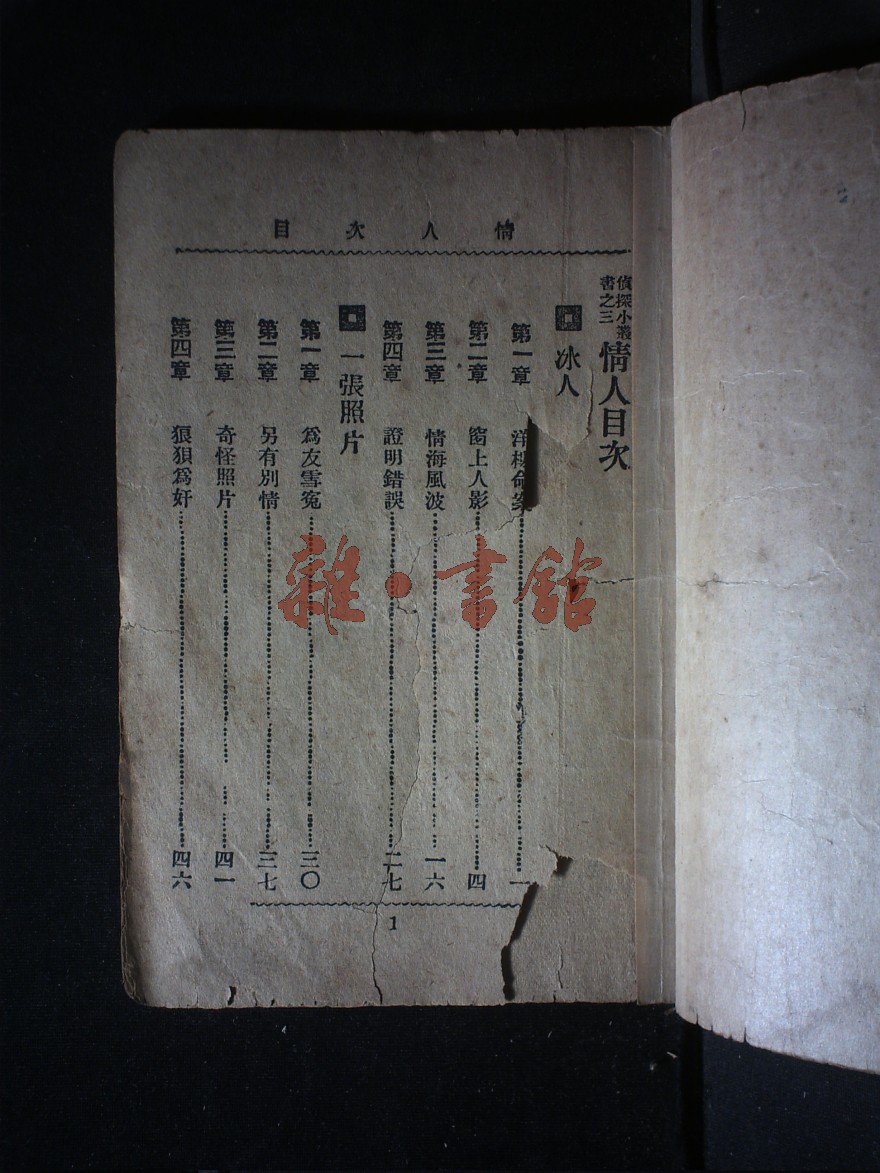 情人次目
偵探小叢書之三 情人目次
冰人
第一章 洋樓命案 一
第二章 窗上人影 四
第三章 情海風波 一六
第四章 證明錯誤 二七
一張照片
第一章 為友雪冤 三〇
第二章 另有別情 三七
第三章 奇怪照片 四一
第四章 狼狽為奸 四六
1
雜·書館